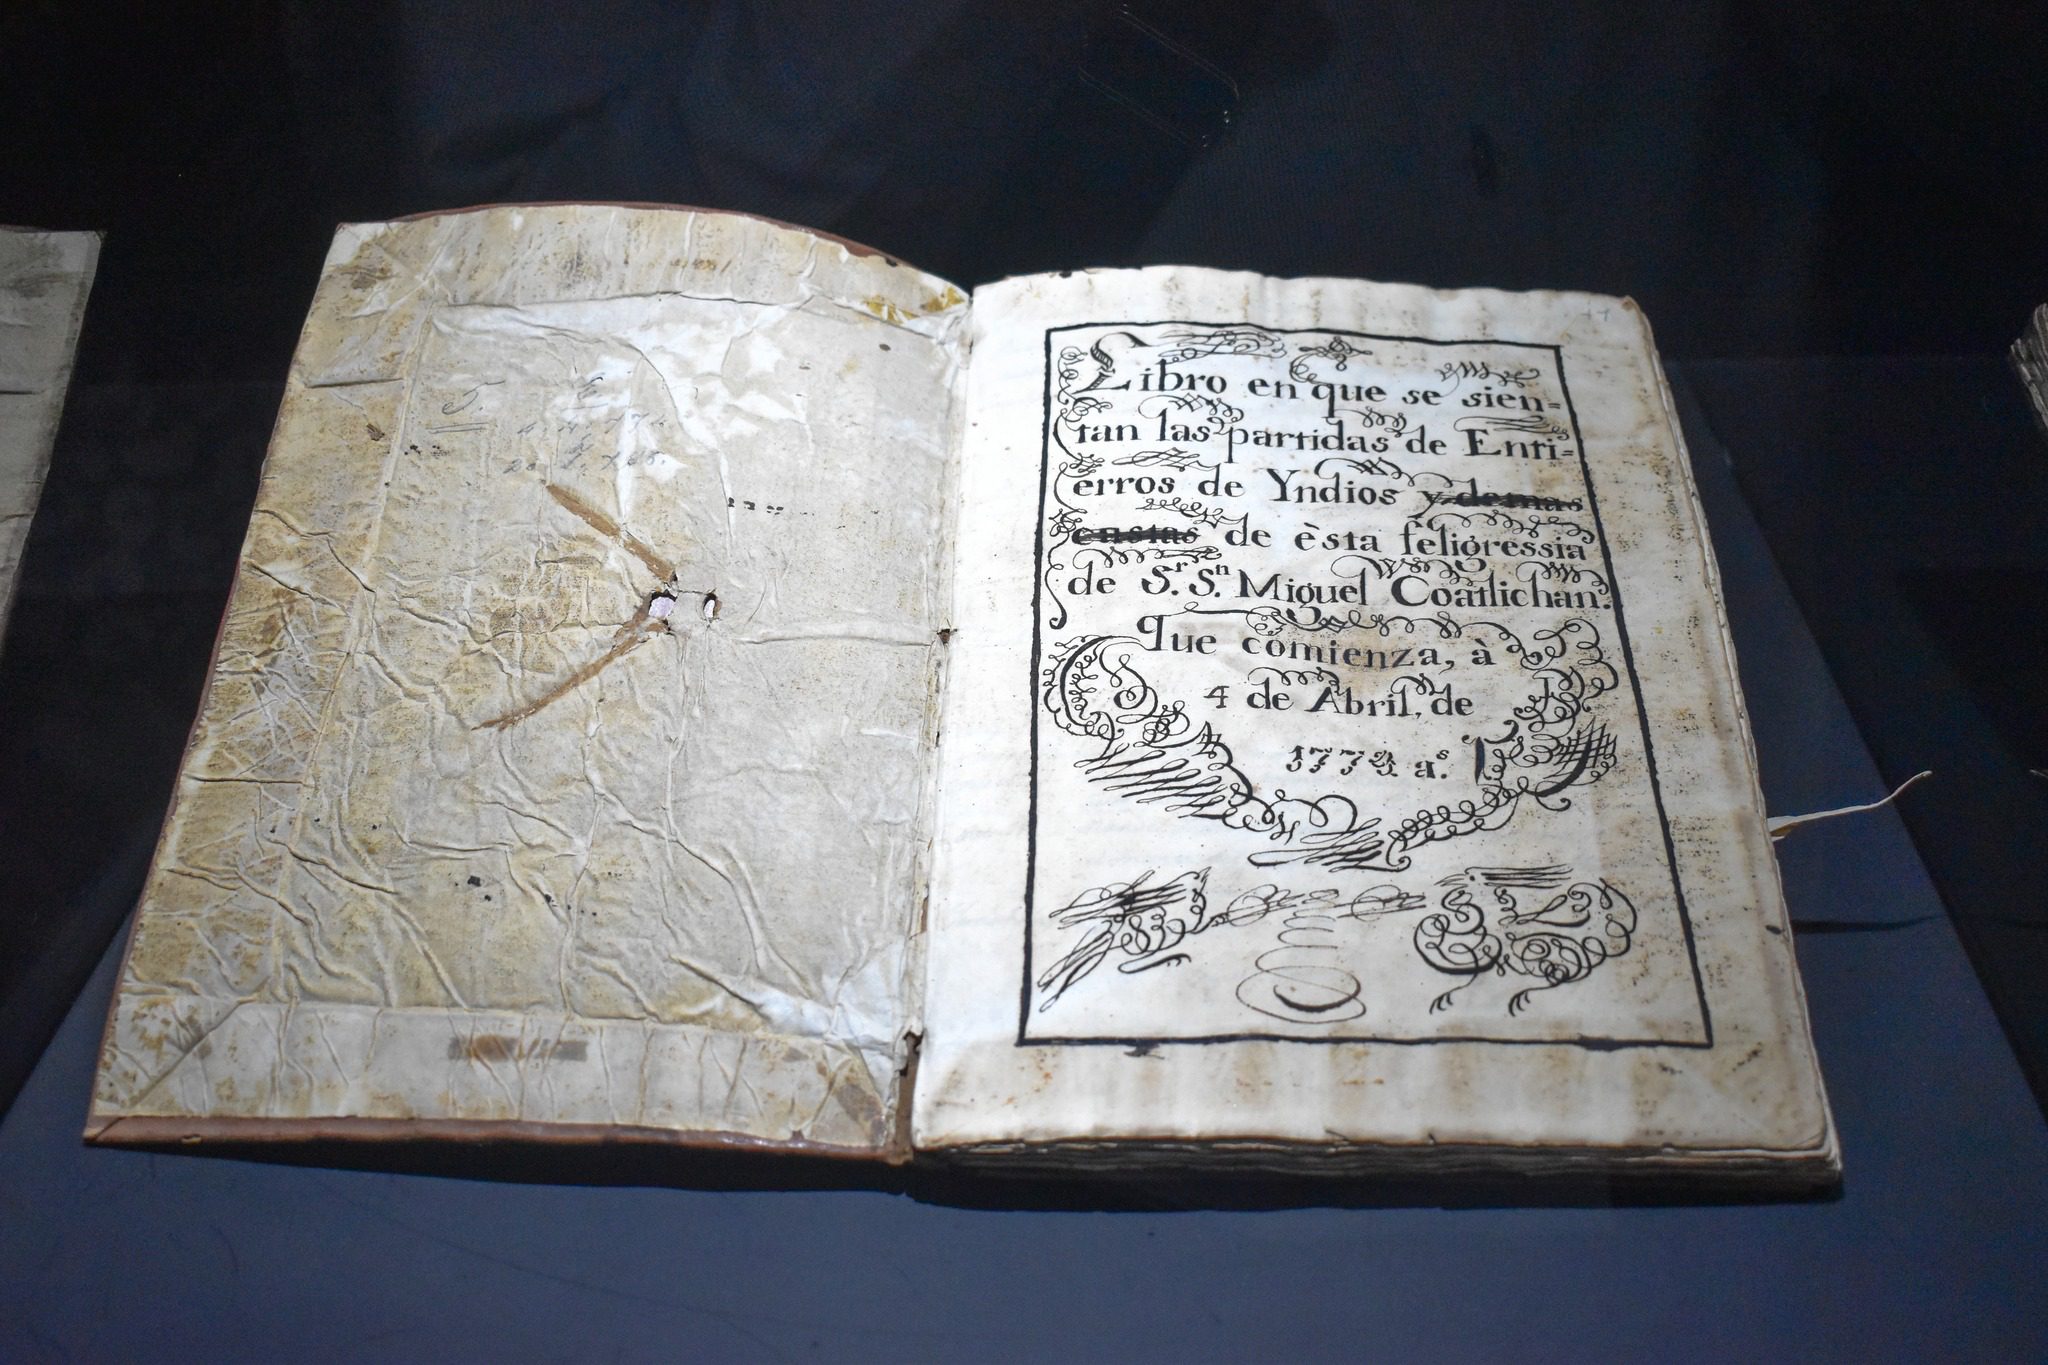 Libro en que se sien=
tan las partidas de Enti=
erros de Yndios y demas
castas de èsta feligressia
de S.r S.n Miguel Coatlichan.
que comienza, à
4 de Abril, de
a.s